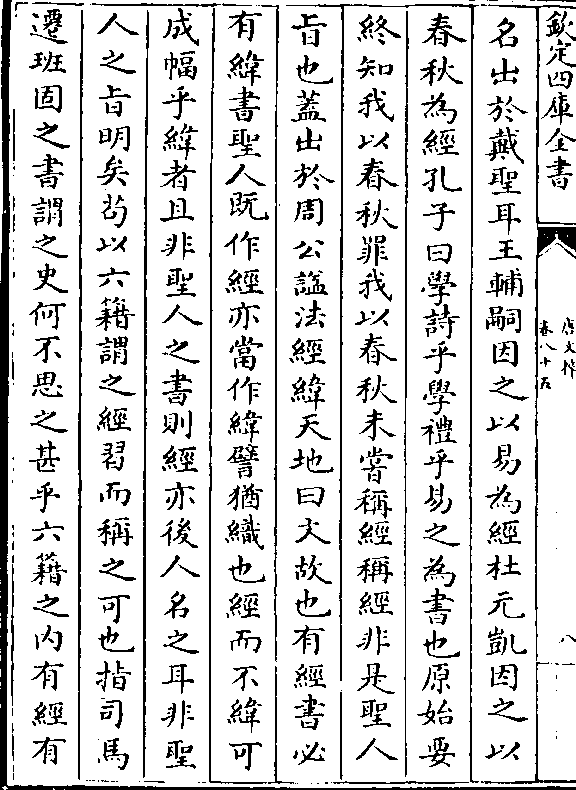 欽定四庫全書
唐文粹
卷八十五
八
名出於戴聖耳王輔嗣因之以易為經杜元凱因之以
春秋為經孔子曰學詩乎學禮乎易之為書也原始要
終知我以春秋罪我以春秋未嘗稱經稱經非是聖人
旨也蓋出於周公諡法經緯天地曰文故也有經書必
有緯書聖人既作經亦當作緯譬猶織也經而不緯可
成幅乎緯者且非聖人之書則經亦後人名之耳非聖
人之旨明矣茍以六籍謂之經習而稱之可也指司馬
遷班固之書謂之史何不思之甚乎六籍之内有經有